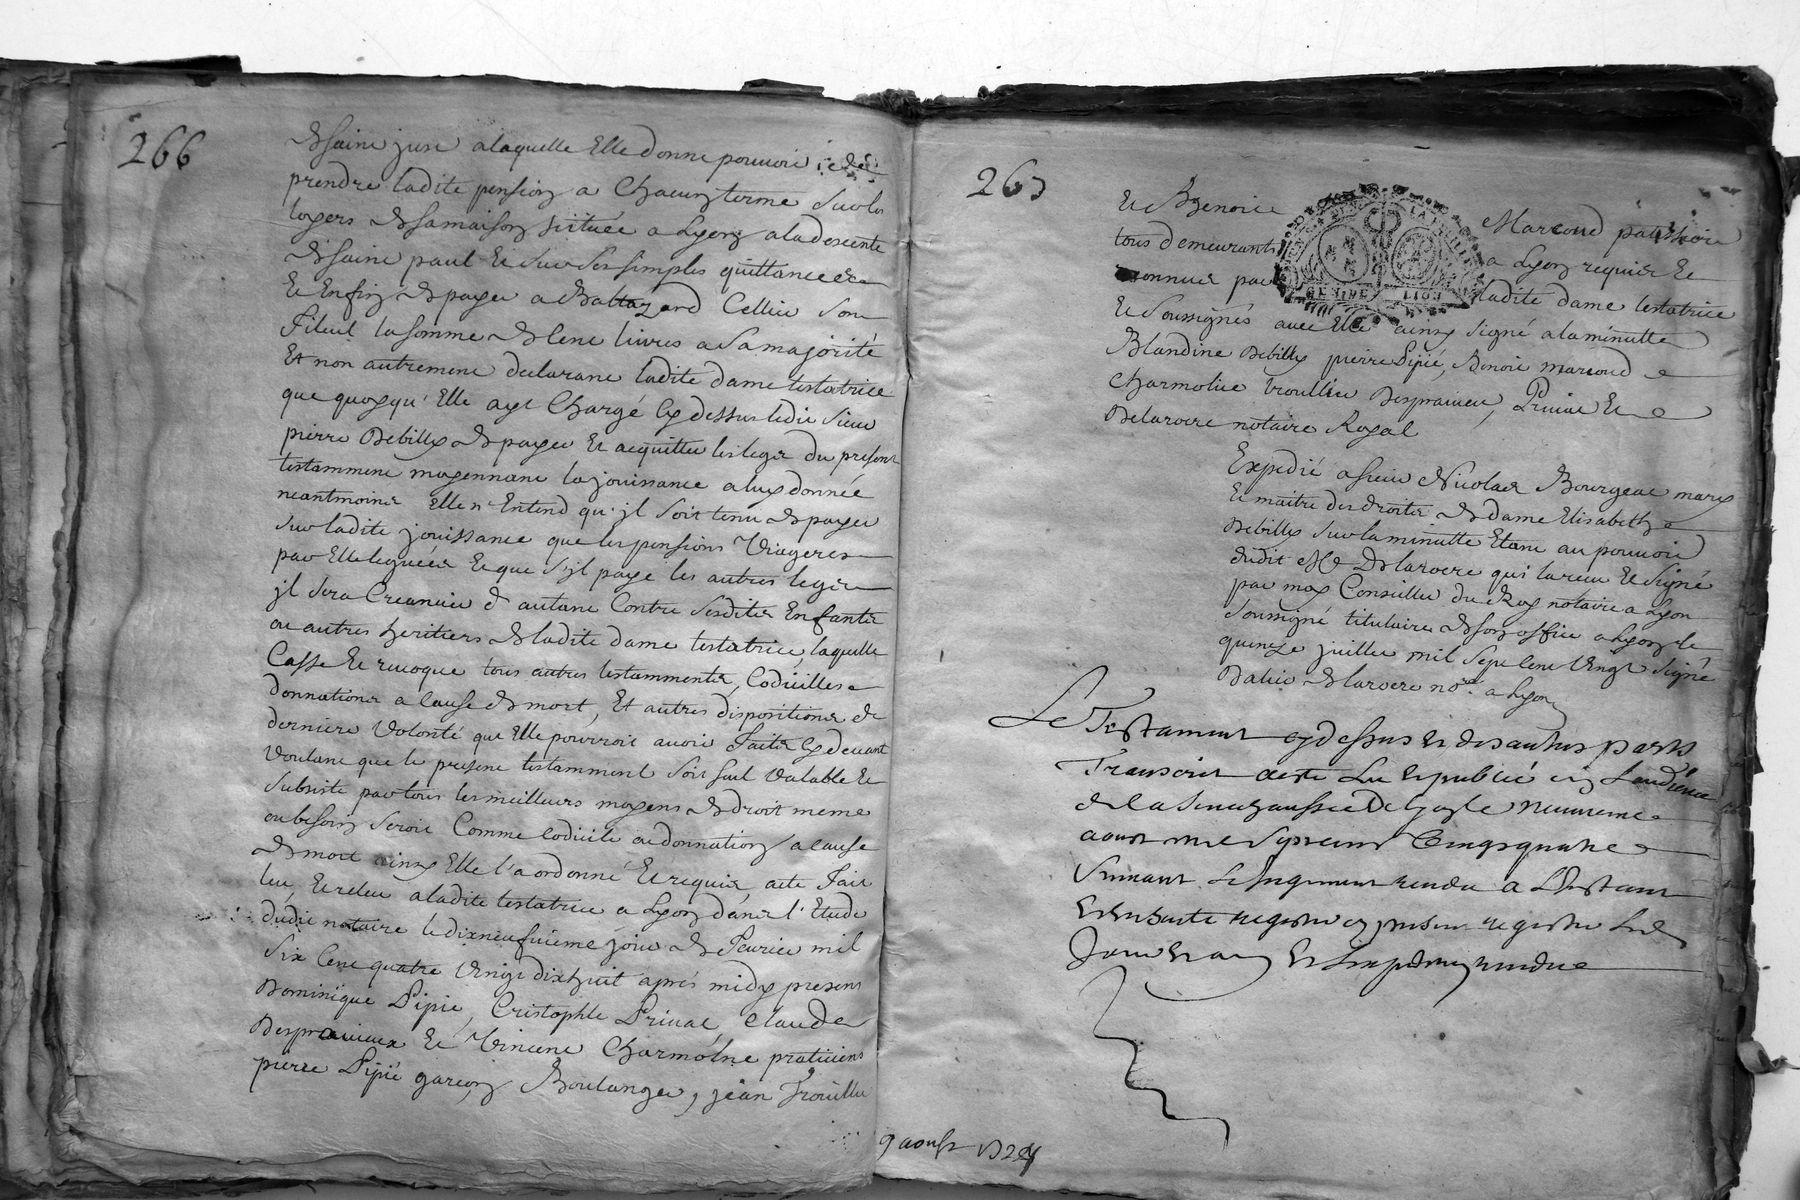 266
de saint just a laquelle Elle donne pouvoir de
prendre ladite pension a Chacun terme sur les
loyers de sa maison scituée a Lyon a la descente
de saint paul Et sur ses simples quittances
Et Enfin de payer a Baltazard Cellier son
filleul la somme de Cent livres a sa majorité
Et non autrement declarant ladite dame testatrice
que quoyqu'Elle ayt Chargé Cy dessus ledit sieur
pierre Debilly de payer Et acquitter les legs du present
testamment moyennant la jouissance a luy donnée
neantmoins Elle n'Entend qu'jl soit tenu de payer
sur ladite jouissance que les pensions Viageres
par Elle leguées Et que s'jl paye les autres legs
jl sera Creancier d'autant Contre sesdits Enfants
ou autres heritiers de ladite dame testatrice, laquelle
Casse Et revoque tous autres testamments, Codicilles
donnations a Cause de mort, Et autres dispositions de
derniere Volonté que Elle pourroit avoir faites Cy devant
voulant que le present testamment soit seul valable Et
subsiste par tous les meilleurs moyens de droit meme
ou besoin seroit Comme Codicile ou donnation a Cause
de mort ainsy Elle l'a ordonné Et requis acte fait
leu, Et releu a ladite testatrice a Lyon dans l'Etude
dudit notaire le dixneufvieme jour de feuvrier mil
six Cent quatre Vingt dixhuit aprés midy presens
Dominique Pipié, Cristophle Privat, Claude
Despravieux Et Vincent Charmolue praticiens
pierre Pipié garçon Boulanger, jean Trouillier
267
Et Benoit Marcoud patissier
tous demeurants a Lyon requis Et
connus par ladite dame testatrice
Et soussignés avec Elle ainsy signé a la minutte
Blandine Debilly pierre Pipié, Benoit marcoud
Charmolue trouillier Despravieux, Privat Et
Delaroere notaire Royal
GENERALITE LION
Expedié a sieur Nicolas Bourgeat mary
Et maitre des droits de dame Elisabeth
Debilly sur la minutte Etant au pouvoir
dudit Me Delaroere qui la receu Et signé
par moy Conseiller du Roy notaire a Lyon
soussigné titulaire de son office a Lyon le
quinze juillet mil sept Cent Vingt signé
Delaroere nore a Lyon
Le Testament cy dessus et des autres parts
Transcrit a esté Lu et publié en Laudience
de la Senechaussée de Lyon le neuvieme
aoust mil sept cent Vingt quatre
Suivant Le Jugement rendu a L'Instant
Et Ensuitte registré es presens registres Led
Jour et an
9 aoust 1724